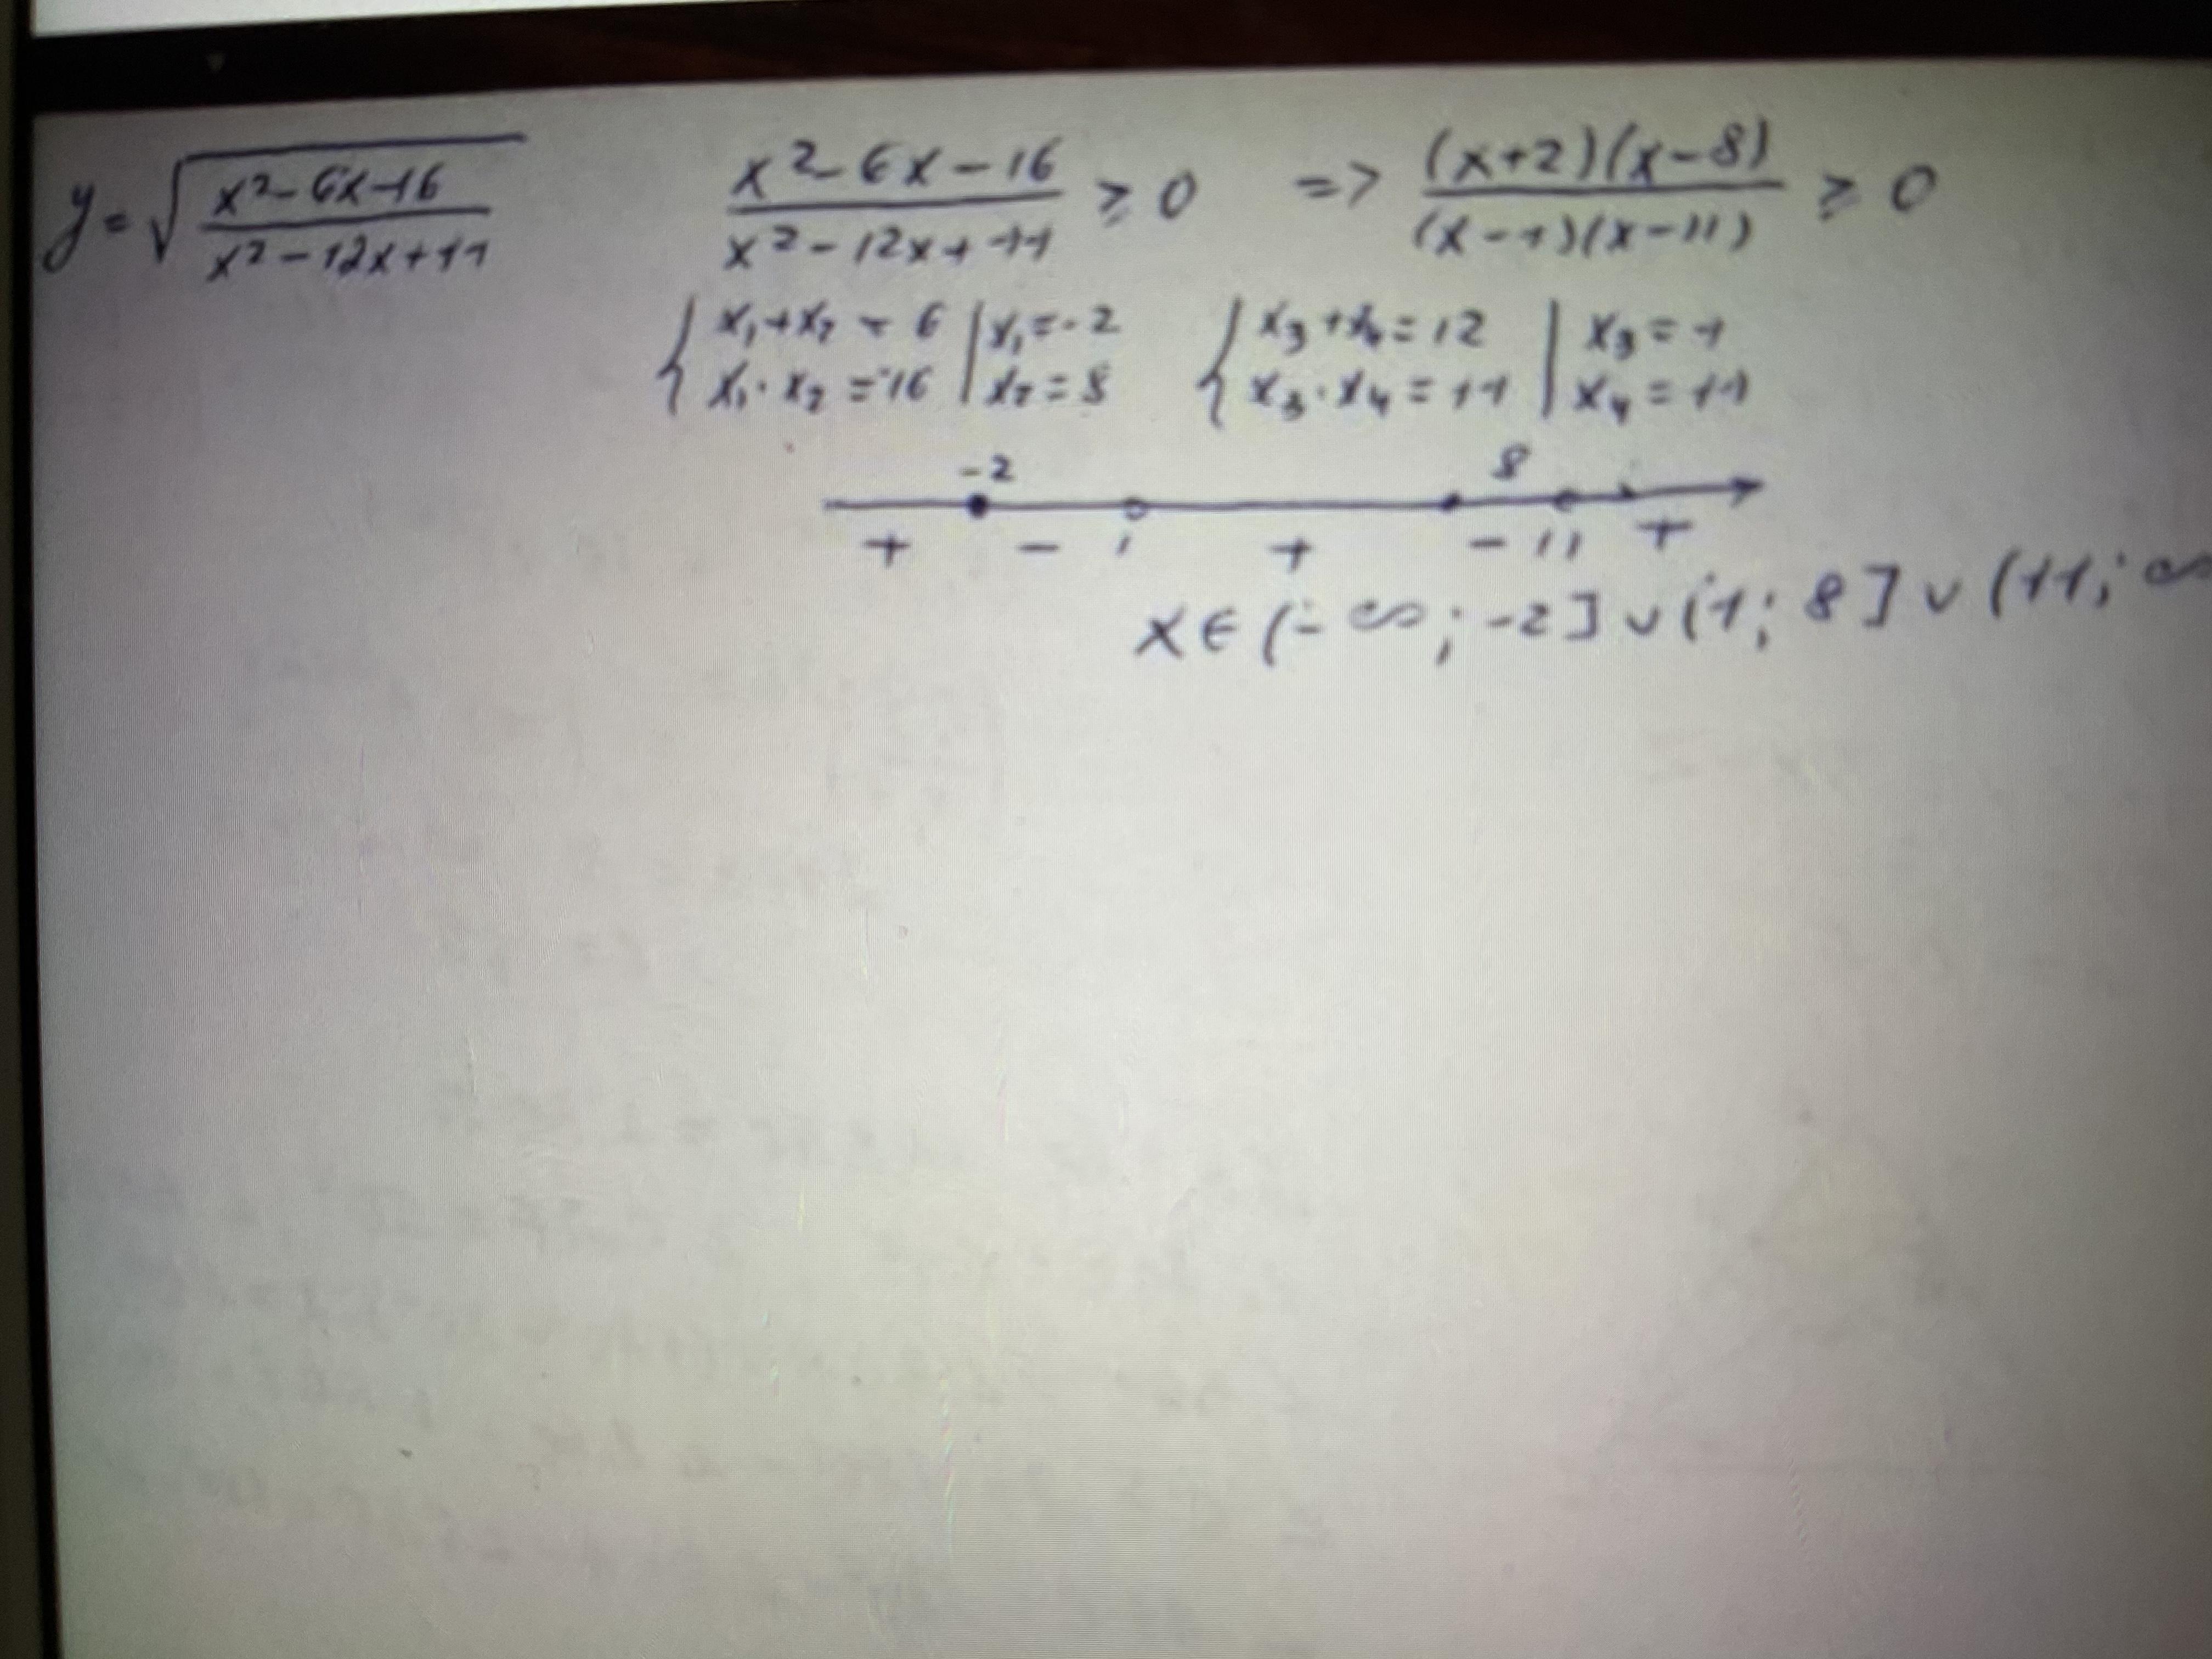 y = √((x²-6x-16)/(x²-12x+11)) (x²-6x-16)/(x²-12x+11) ≥ 0 => ((x+2)(x-8))/((x-1)(x-11)) ≥ 0
{ x₁+x₂ = 6 | x₁ = -2 { x₃+x₄ = 12 | x₃ = 1
x₁·x₂ = -16 | x₂ = 8 x₃·x₄ = 11 | x₄ = 11
-2 8
+ - 1 + - 11 +
x ∈ (-∞; -2] ∪ (1; 8] ∪ (11; ∞